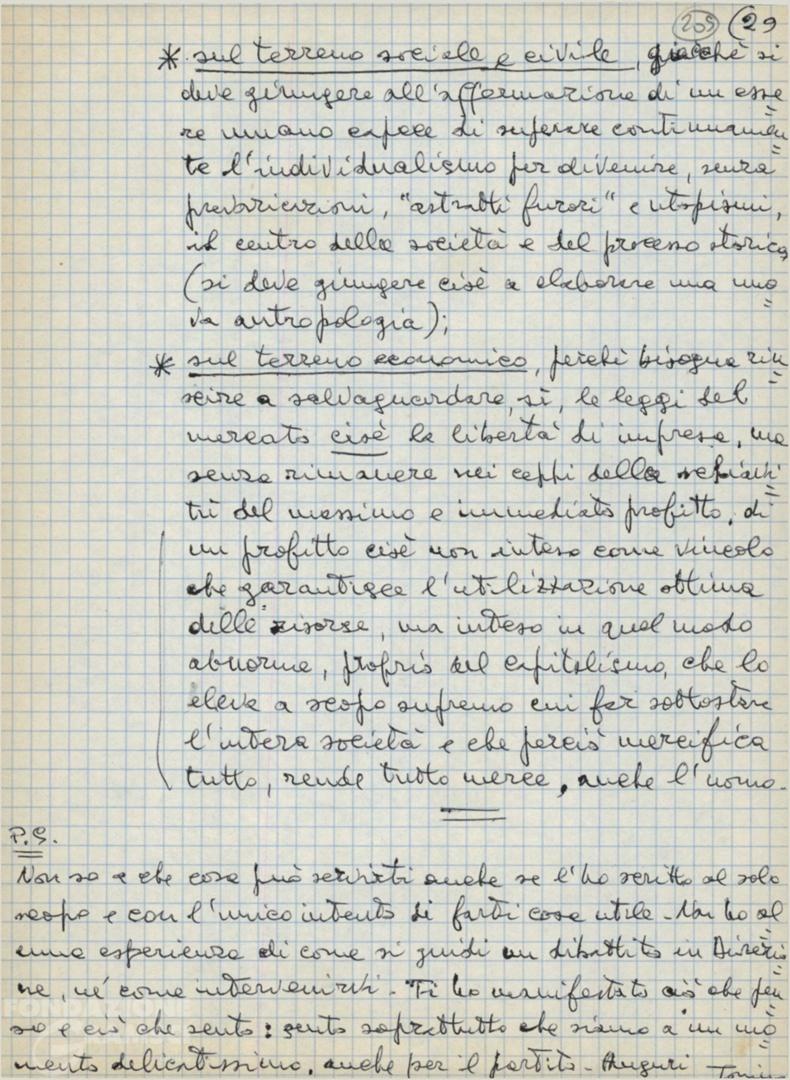 209 (29
* sul terreno sociale e civile, giacché si
deve giungere all'affermazione di un esse=
re umano capace di superare continuamen=
te l'individualismo per divenire, senza
prevaricazioni, "astratti furori" e utopismi,
il centro della società e del processo storico
(si deve giungere cioè a elaborare una nuo=
va antropologia);
* sul terreno economico, perché bisogna riu=
scire a salvaguardare, sì, le leggi del
mercato cioè la libertà di impresa, ma
senza rimanere nei ceppi della
del massimo e immediato profitto, di
un profitto cioè non inteso come vincolo
che garantisce l'utilizzazione ottima
delle risorse, ma inteso in quel modo
abnorme, proprio del capitalismo, che lo
eleva a scopo supremo cui far sottostare
l'intera società e che perciò mercifica
tutto, rende tutto merce, anche l'uomo.
P.S.
Non so a che cosa può servirti anche se l'ho scritto al solo
scopo e con l'unico intento di farti cosa utile - Non ho al=
cuna esperienza di come si guidi un dibattito in Direzio=
ne, né come intervenirvi - Ti ho manifestato ciò che pen=
so e ciò che sento: sento soprattutto che siamo a un mo=
mento delicatissimo, anche per il partito - Auguri Tonino
FONDAZIONE